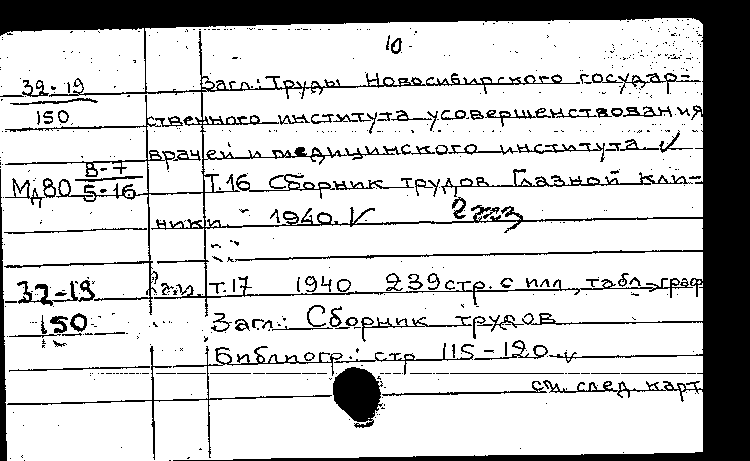 10
32-19
150
Загл.: Труды Новосибирского государ-
ственного института усовершенствования
врачей и медицинского института. ✓
Мд80 В-7
5-16
Т.16 Сборник трудов Глазной кли-
ники. 1940. ✓ 2 экз
32-19
150
2 экз. т.17 1940 239 стр. с илл., табл., граф
Загл.: Сборник трудов
Библиогр.: стр 115-120. ✓
см. след. карт